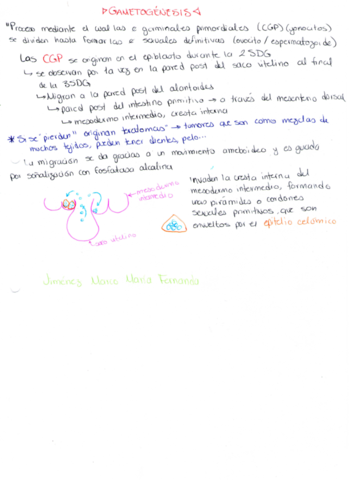 GAMETOGÉNESIS
"Proceso mediante el cual las c germinales primordiales (CGP) (gonocitos)
se dividen hasta formar las c sexuales definitivas (ovocito/espermatozoide)
Las CGP se originan en el epiblasto durante la 2SDG
↳ se observan por 1a vez en la pared post del saco vitelino al final
de la 3SDG
↳ Migran a la pared post del alantoides
↳ pared post del intestino primitivo → a través del mesenterio dorsal
↳ mesodermo intermedio, cresta interna
* Si se "pierden" originan teratomas → tumores que son como mezclas de
muchos tejidos, pueden tener dientes, pelo...
La migración se da gracias a un movimiento ameboideo y es guiado
por señalización con fosfatasa alcalina
mesodermo
intermedio
saco vitelino
Invaden la cresta interna del
mesodermo intermedio, formando
unas pirámides o cordones
sexuales primitivos, que son
envueltos por el epitelio celómico
Jiménez Marco María Fernanda